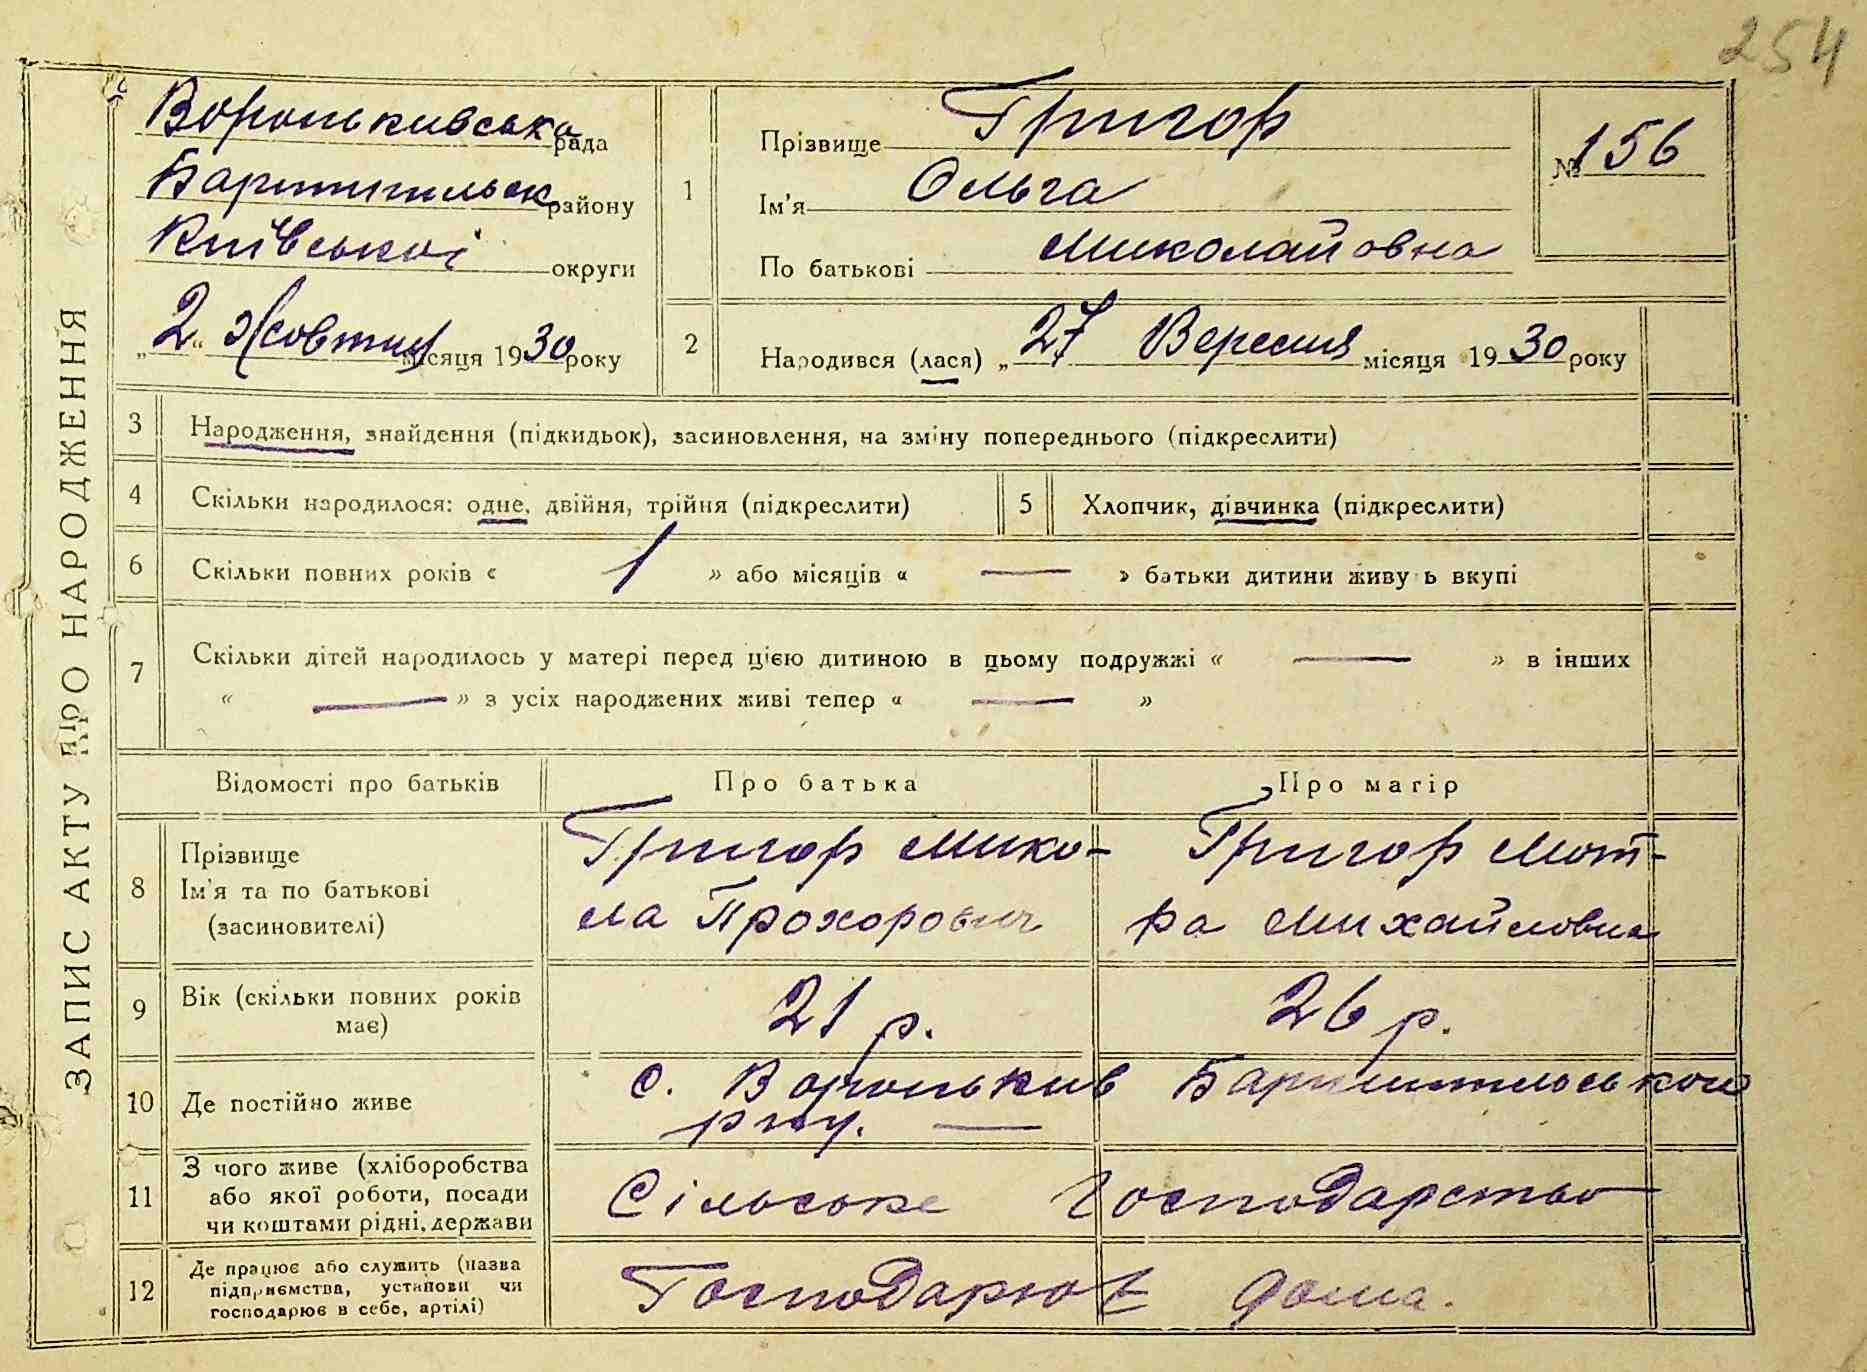 254
ЗАПИС АКТУ ПРО НАРОДЖЕННЯ
Вороньківська рада
Баришпільськ району
Київської округи
„2“ Жовтня місяця 1930 року
1
Прізвище Григор
Ім'я Ольга
По батькові Миколайовна
№ 156
2
Народився (лася) „27 Вересня місяця 1930 року
3 Народження, знайдення (підкидьок), засиновлення, на зміну попереднього (підкреслити)
4 Скільки народилося: одне, двійня, трійня (підкреслити)
5 Хлопчик, дівчинка (підкреслити)
6 Скільки повних років « 1 » або місяців « — » батьки дитини живу ь вкупі
7 Скільки дітей народилось у матері перед цією дитиною в цьому подружжі « — » в інших
« — » з усіх народжених живі тепер « — »
Відомості про батьків Про батька Про матір
8 Прізвище
Ім'я та по батькові
(засиновителі)
Григор Мико-
ла Прохорович
Григор Мот-
ря Михайловна
9 Вік (скільки повних років
має)
21 р. 26 р.
10 Де постійно живе
с. Вороньків Баришпільського
р-ну. —
11 З чого живе (хліборобства
або якої роботи, посади
чи коштами рідні, держави
Сільське Господарство
12 Де працює або служить (назва
підприємства, установи чи
господарює в себе, артілі)
Господарює дома.